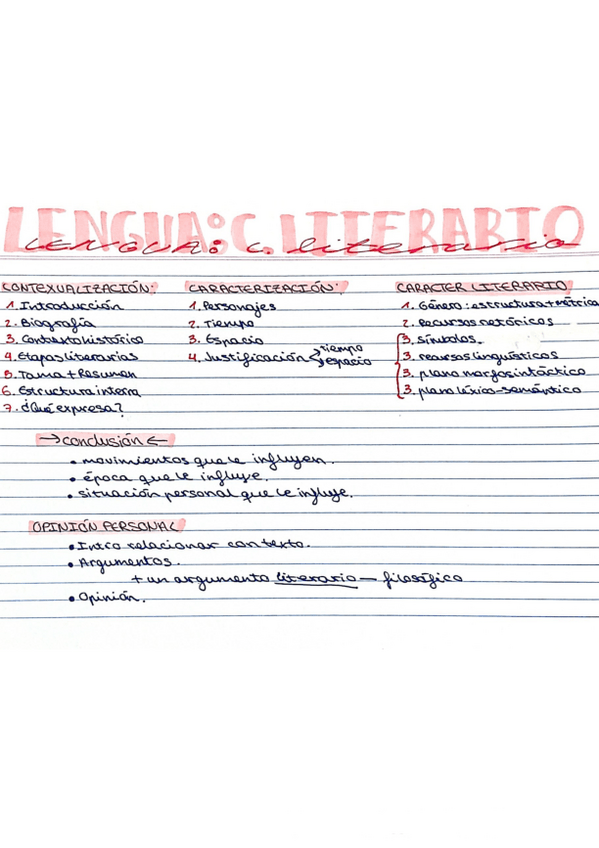 LENGUA: C. LITERARIO
LENGUA: C. literario
CONTEXUALIZACIÓN:
1. Introducción
2. Biografía
3. Contexto histórico
4. Etapas literarias
5. Tema + Resumen
6. Estructura interna
7. ¿Qué expresa?
CARACTERIZACIÓN:
1. Personajes
2. Tiempo
3. Espacio
4. Justificación tiempo
espacio
CARACTER LITERARIO
1. Género: estructura + métrica
2. Recursos retóricos
3. símbolos.
3. recursos lingüísticos
3. plano morfosintáctico
3. plano léxico-semántico
→ conclusión ←
• movimientos que le influyen.
• época que le influye.
• situación personal que le influye.
OPINIÓN PERSONAL
• Intro relacionar con texto.
• Argumentos.
+ un argumento literario — filosófico
• Opinión.